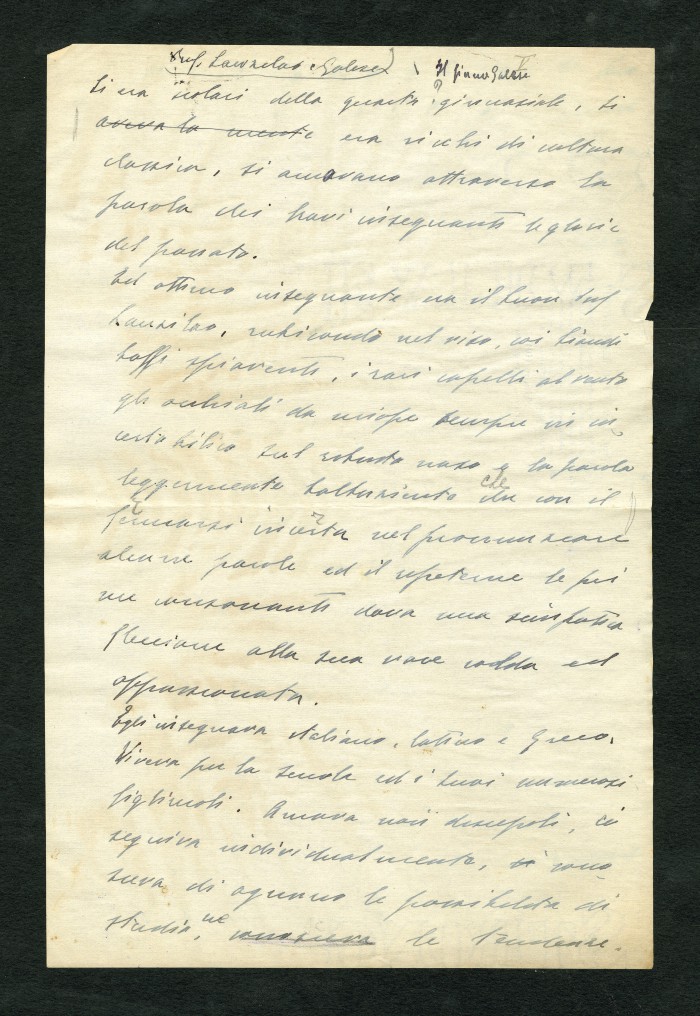 Prof. e Galese
Il primo Galese
V
Si era scolari della quarta ginnasiale, si
aveva la mente era ricchi di cultura
classica, si amavano attraverso la
parola dei bravi insegnanti le glorie
del passato.
Ed ottimo insegnante era il buon Prof
rubicondo nel viso, coi biondi
baffi spioventi, i rari capelli al vento
gli occhiali da miope sempre in in
sul robusto naso e la parola
leggermente balbuziente che con il
fermarsi incerta nel pronunciare
alcune parole ed il ripeterne le pri
me consonanti dava una simpatica
flessione alla sua voce calda ed
appassionata.
Egli insegnava italiano, latino e Greco.
Viveva per la scuola ed i suoi numerosi
figliuoli. Amava noi discepoli, ci
seguiva individualmente, cono
sceva di ognuno le possibilità di
studio, ne conosceva le tendenze.